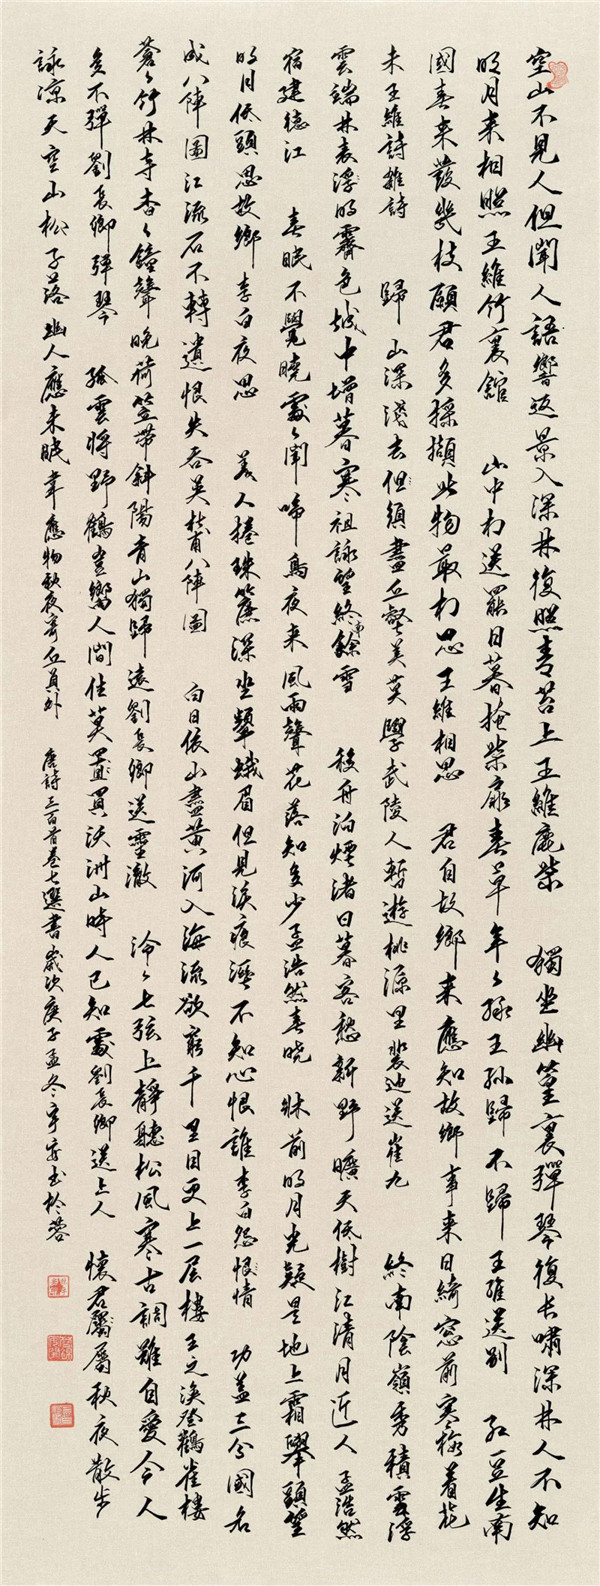 空山不見人但聞人語響返景入深林復照青苔上王維鹿柴 獨坐幽篁裏彈琴復長嘯深林人不知
明月來相照王維竹裏館 山中相送罷日暮掩柴扉春草年々綠王孫歸不歸王維送別 紅豆生南
國春來發幾枝願君多採擷此物最相思王維相思 君自故鄉來應知故鄉事來日綺窗前寒梅着花
未王維詩雜詩 歸山深淺去但須盡丘壑美莫學武陵人暫遊桃源里裴迪送崔九 終南陰嶺秀積雪浮
雲端林表浮明霽色城中增暮寒祖詠望終南餘雪 移舟泊煙渚日暮客愁新野曠天低樹江清月近人孟浩然
宿建德江 春眠不覺曉處々聞啼鳥夜來風雨聲花落知多少孟浩然春曉 牀前明月光疑是地上霜舉頭望
明月低頭思故鄉李白夜思 美人捲珠簾深坐顰蛾眉但見淚痕濕不知心恨誰李白怨恨情 功蓋三分國名
成八陣圖江流石不轉遺恨失吞吳杜甫八陣圖 白日依山盡黃河入海流欲窮千里目更上一層樓王之渙登鸛雀樓
蒼々竹林寺杳々鐘聲晚荷笠帶斜陽青山獨歸遠劉長卿送靈澈 泠々七弦上靜聽松風寒古調雖自愛今人
多不彈劉長卿彈琴 孤雲將野鶴豈嚮人間住莫置買沃洲山時人已知處劉長卿送上人 懷君屬屬秋夜散步
詠涼天空山松子落幽人應未眠韋應物秋夜寄丘員外 唐詩三百首卷七選書歲次庚子孟冬書於蓉